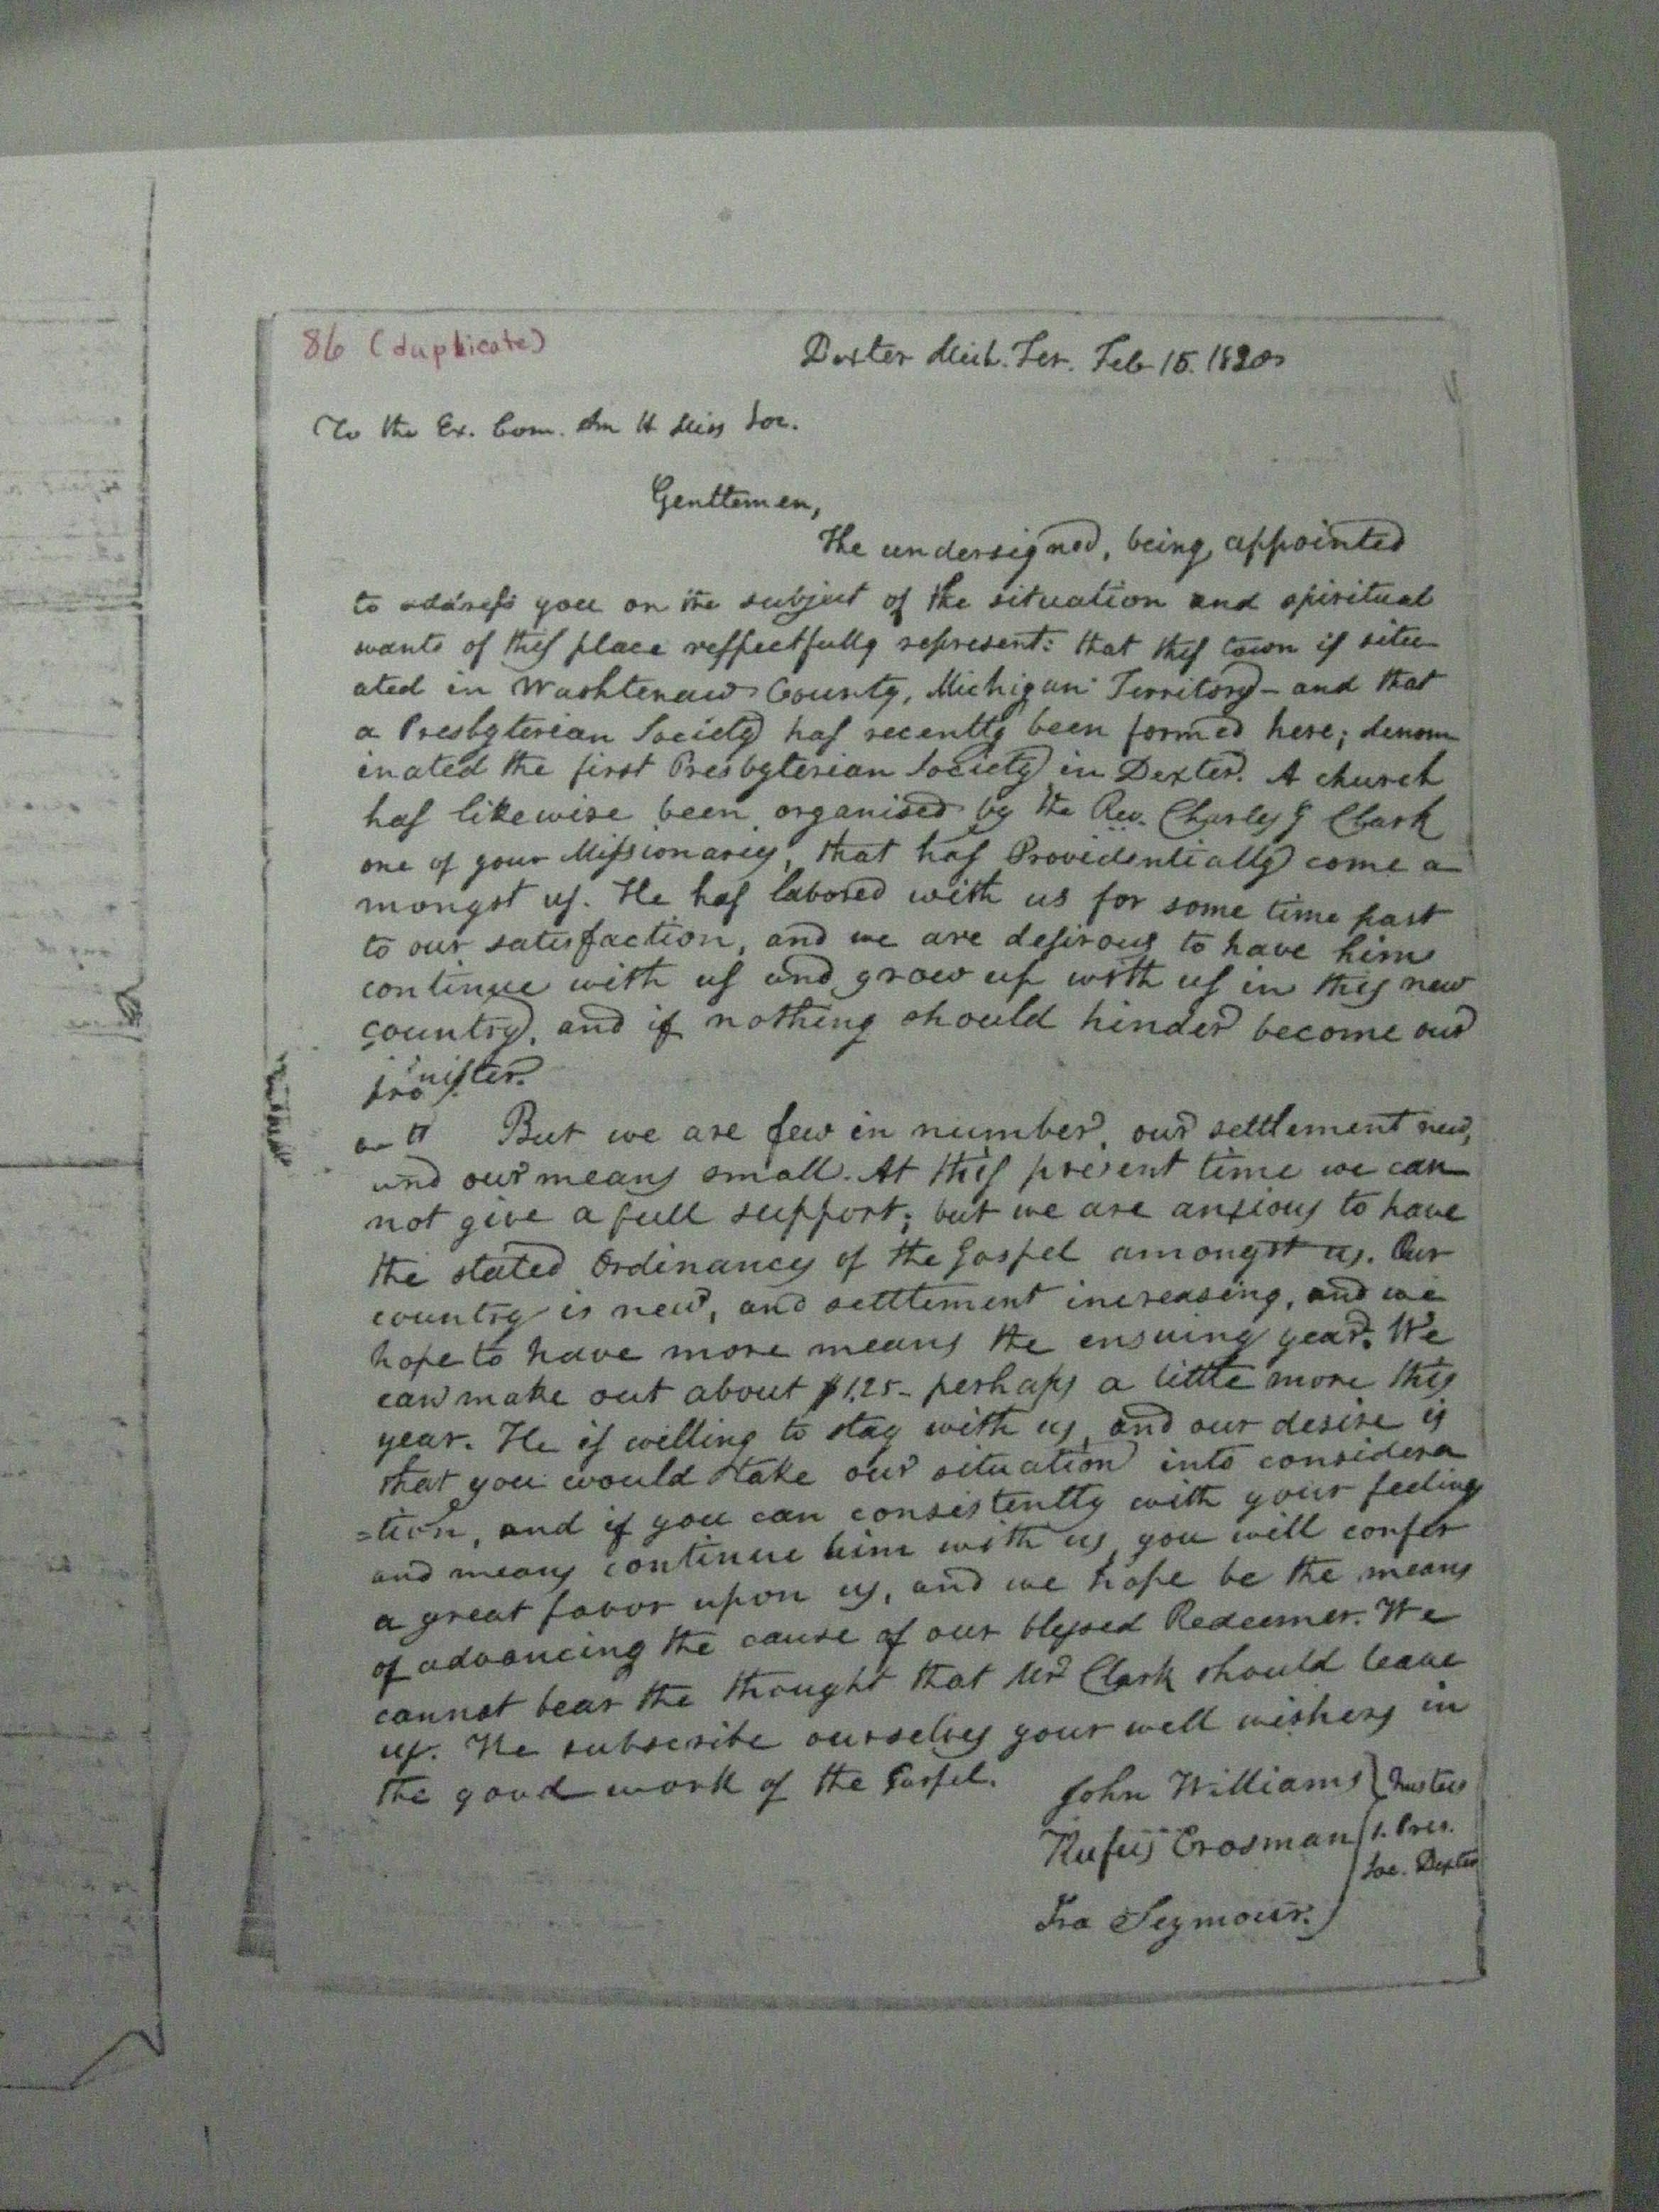 86 (duplicate)
Dexter Mich. Ter. Feb 15.
To the Ex. Com. Am H Miss Soc.
Genttemen,
The undersigned, being appointed
to address you on the subject of the situation and spiritual
wants of this place respectfully represent: that this town is situ
ated in Washtenaw County, Michigan Territory - and that
a Presbyterian Society has recently been formed here; denom
inated the first Presbyterian Society in Dexter. A church
has likewise been organised by the Rev. Charles G Clark
one of your Missionaries, that has Providentially come a
mongst us. He has labored with us for some time past
to our satisfaction, and we are desirous to have him
continue with us and grow up with us in this new
country, and if nothing should hinder become our
minister.
But we are few in number, our settlement new,
and our means small. At this present time we can
not give a full support; but we are anxious to have
the stated Ordinances of the Gospel amongst us. Our
country is new, and settlement increasing, and we
hope to have more means the ensuing year. We
can make out about $125- perhaps a little more this
year. He is willing to stay with us, and our desire is
that you would take our situation into considera
=tion, and if you can consistently with your feelings
and means continue him with us, you will confer
a great favor upon us, and we hope be the means
of advancing the cause of our blessed Redeemer. We
cannot bear the thought that Mr Clark should leave
us. We subscribe ourselves your well wishers in
the good work of the Gospel.
John Williams } Trustees
Rufus Crosman 1. Pres.
Soc. Dexter
Ira Seymour.